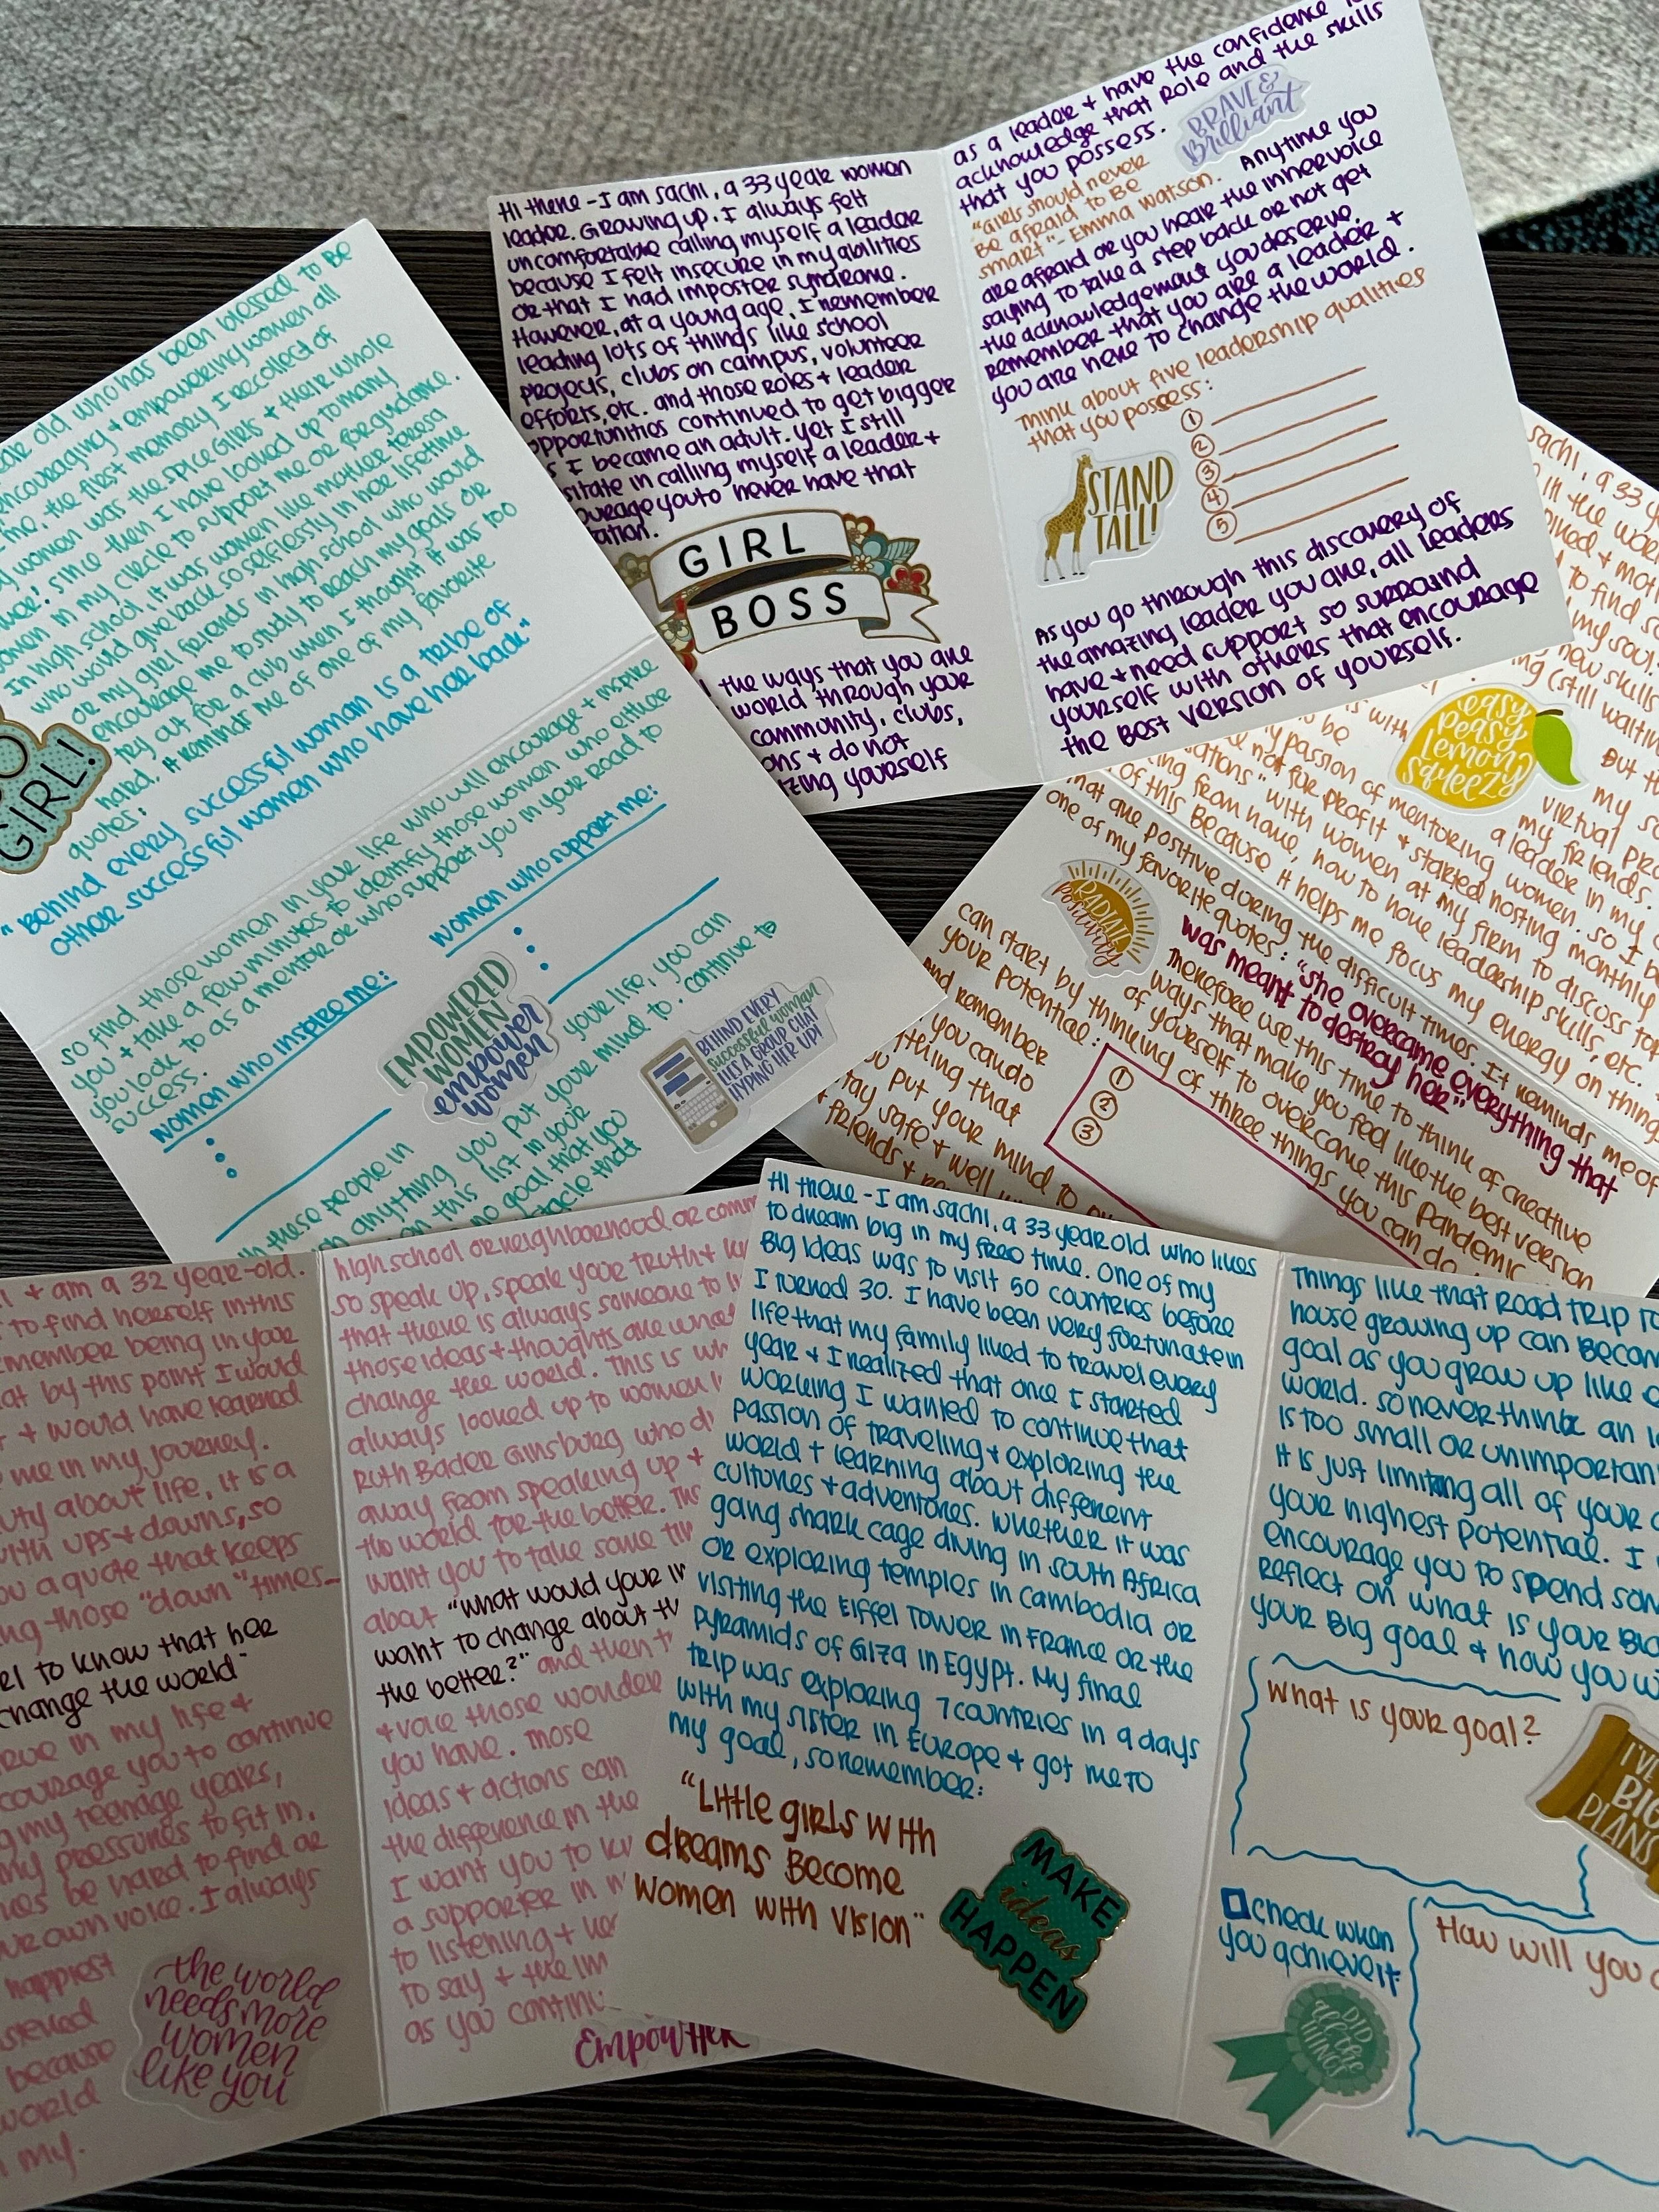 Hi there - I am Sachi, a 33 year women
leader. Growing up, I always felt
uncomfortable calling myself a leader
because I felt insecure in my abilities
or that I had imposter syndrome.
However, at a young age, I remember
leading lots of things like school
projects, clubs on campus, volunteer
efforts, etc. and those roles + leader
opportunities continued to get bigger
I became an adult. yet I still
in calling myself a leader +
you to never have that
GIRL
BOSS
the ways that you are
world through your
community, clubs,
+ do not
yourself
as a leader + have the confidence
acknowledge that role and the skills
that you possess.
BRAVE &
Brilliant
"Girls should never
be afraid to be
smart" - Emma Watson.
Anytime you
are afraid or you hear the inner voice
saying to take a step back or not get
the acknowledgement you deserve,
remember that you are a leader +
you are here to change the world.
Think about five leadership qualities
that you possess:
1
2
3
4
5
STAND
TALL!
As you go through this discovery of
the amazing leader you are, all leaders
have + need support so surround
yourself with others that encourage
the best version of yourself.
old who has been blessed to be
encouraging + empowering women all
me. the first memory I recollect of
women was the Spice Girls + their whole
since then I have looked up to many
women in my circle to support me or for guidance.
In high school, it was women like mother teresa
who would give back so selflessly in her lifetime
or my girl friends in high school who would
encourage me to study to reach my goals or
try out for a club when I thought it was too
hard. It reminds me of one of my favorite
quotes:
"Behind every successful woman is a tribe of
other successful women who have her back"
GIRL!
So find those women in your life who will encourage + inspire
you + take a few minutes to identify those women who either
you look to as a mentor or who support you in your road to
success.
women who inspire me:
women who support me:
EMPOWERED
WOMEN
empower
women
BEHIND EVERY
Successful woman
LIES A GROUP CHAT
HYPING HER UP!
these people in
your life, you can
anything you put your mind to. continue to
on this list in your
no goal that you
that
Sachi, a 33
in the
to find
my soul.
new skills
(still
easy
peasy
Lemon
Squeezy
But
my
virtual
my friends.
a leader in my
passion of mentoring women. so I
not for profit + started hosting monthly
with women at my firm to discuss
from home, how to have leadership skills, etc.
of this because it helps me focus my energy on things
that are positive during the difficult times. It reminds me of
one of my favorite quotes: "She overcame everything that
was meant to destroy her"
RADIATE
positivity
Therefore use this time to think of creative
ways that make you feel like the best version
of yourself to overcome this pandemic
can start by thinking of three things you can do
your potential:
1
2
3
and remember
you can do
that
you put your mind to
stay safe + well
friends +
+ am a 32 year-old.
to find herself in this
remember being in your
that by this point I would
+ would have learned
me in my journey.
about life, it is a
with ups + downs, so
you a quote that keeps
those "down" times -
to know that her
change the world"
in my life +
encourage you to continue
my teenage years,
my pressures to fit in.
be hard to find or
your own voice. I always
happiest
because
world
my.
the world
needs more
women
like you
high school or neighborhood or
so speak up, speak your truth +
that there is always someone to
those ideas + thoughts are what
change the world. This is
always looked up to women
Ruth Bader Ginsburg who
away from speaking up +
the world for the better.
want you to take some
about "what would your
want to change about
the better?" and then
+ voice those
you have. Those
ideas + actions can
the difference in the
I want you to
a supporter in
to listening +
to say + the
as you
EmpowHer
Hi there - I am Sachi, a 33 year old who likes
to dream big in my free time. One of my
Big Ideas was to visit 50 countries before
I turned 30. I have been very fortunate in
life that my family liked to travel every
year + I realized that once I started
working I wanted to continue that
passion of traveling + exploring the
world + learning about different
cultures + adventures. Whether it was
gang shark cage diving in South Africa
or exploring temples in Cambodia or
visiting the Eiffel Tower in France or the
Pyramids of Giza in Egypt. My final
trip was exploring 7 countries in 9 days
with my sister in Europe + got me to
my goal, so remember:
"Little girls with
dreams Become
women with vision"
MAKE
ideas
HAPPEN
Things like that road trip to
house growing up can become
goal as you grow up like
world. so never think an
is too small or unimportant
It is just limiting all of your
your highest potential. I
encourage you to spend some
reflect on what is your Big
your Big goal + how you
What is your goal?
I'VE
BIG
PLANS
check when
you achieve it
DID
all the
THINGS
How will you